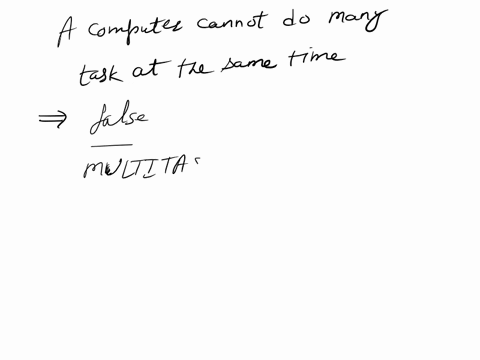 A computer cannot do many
task at the same time
⇒ false
MULTITAS